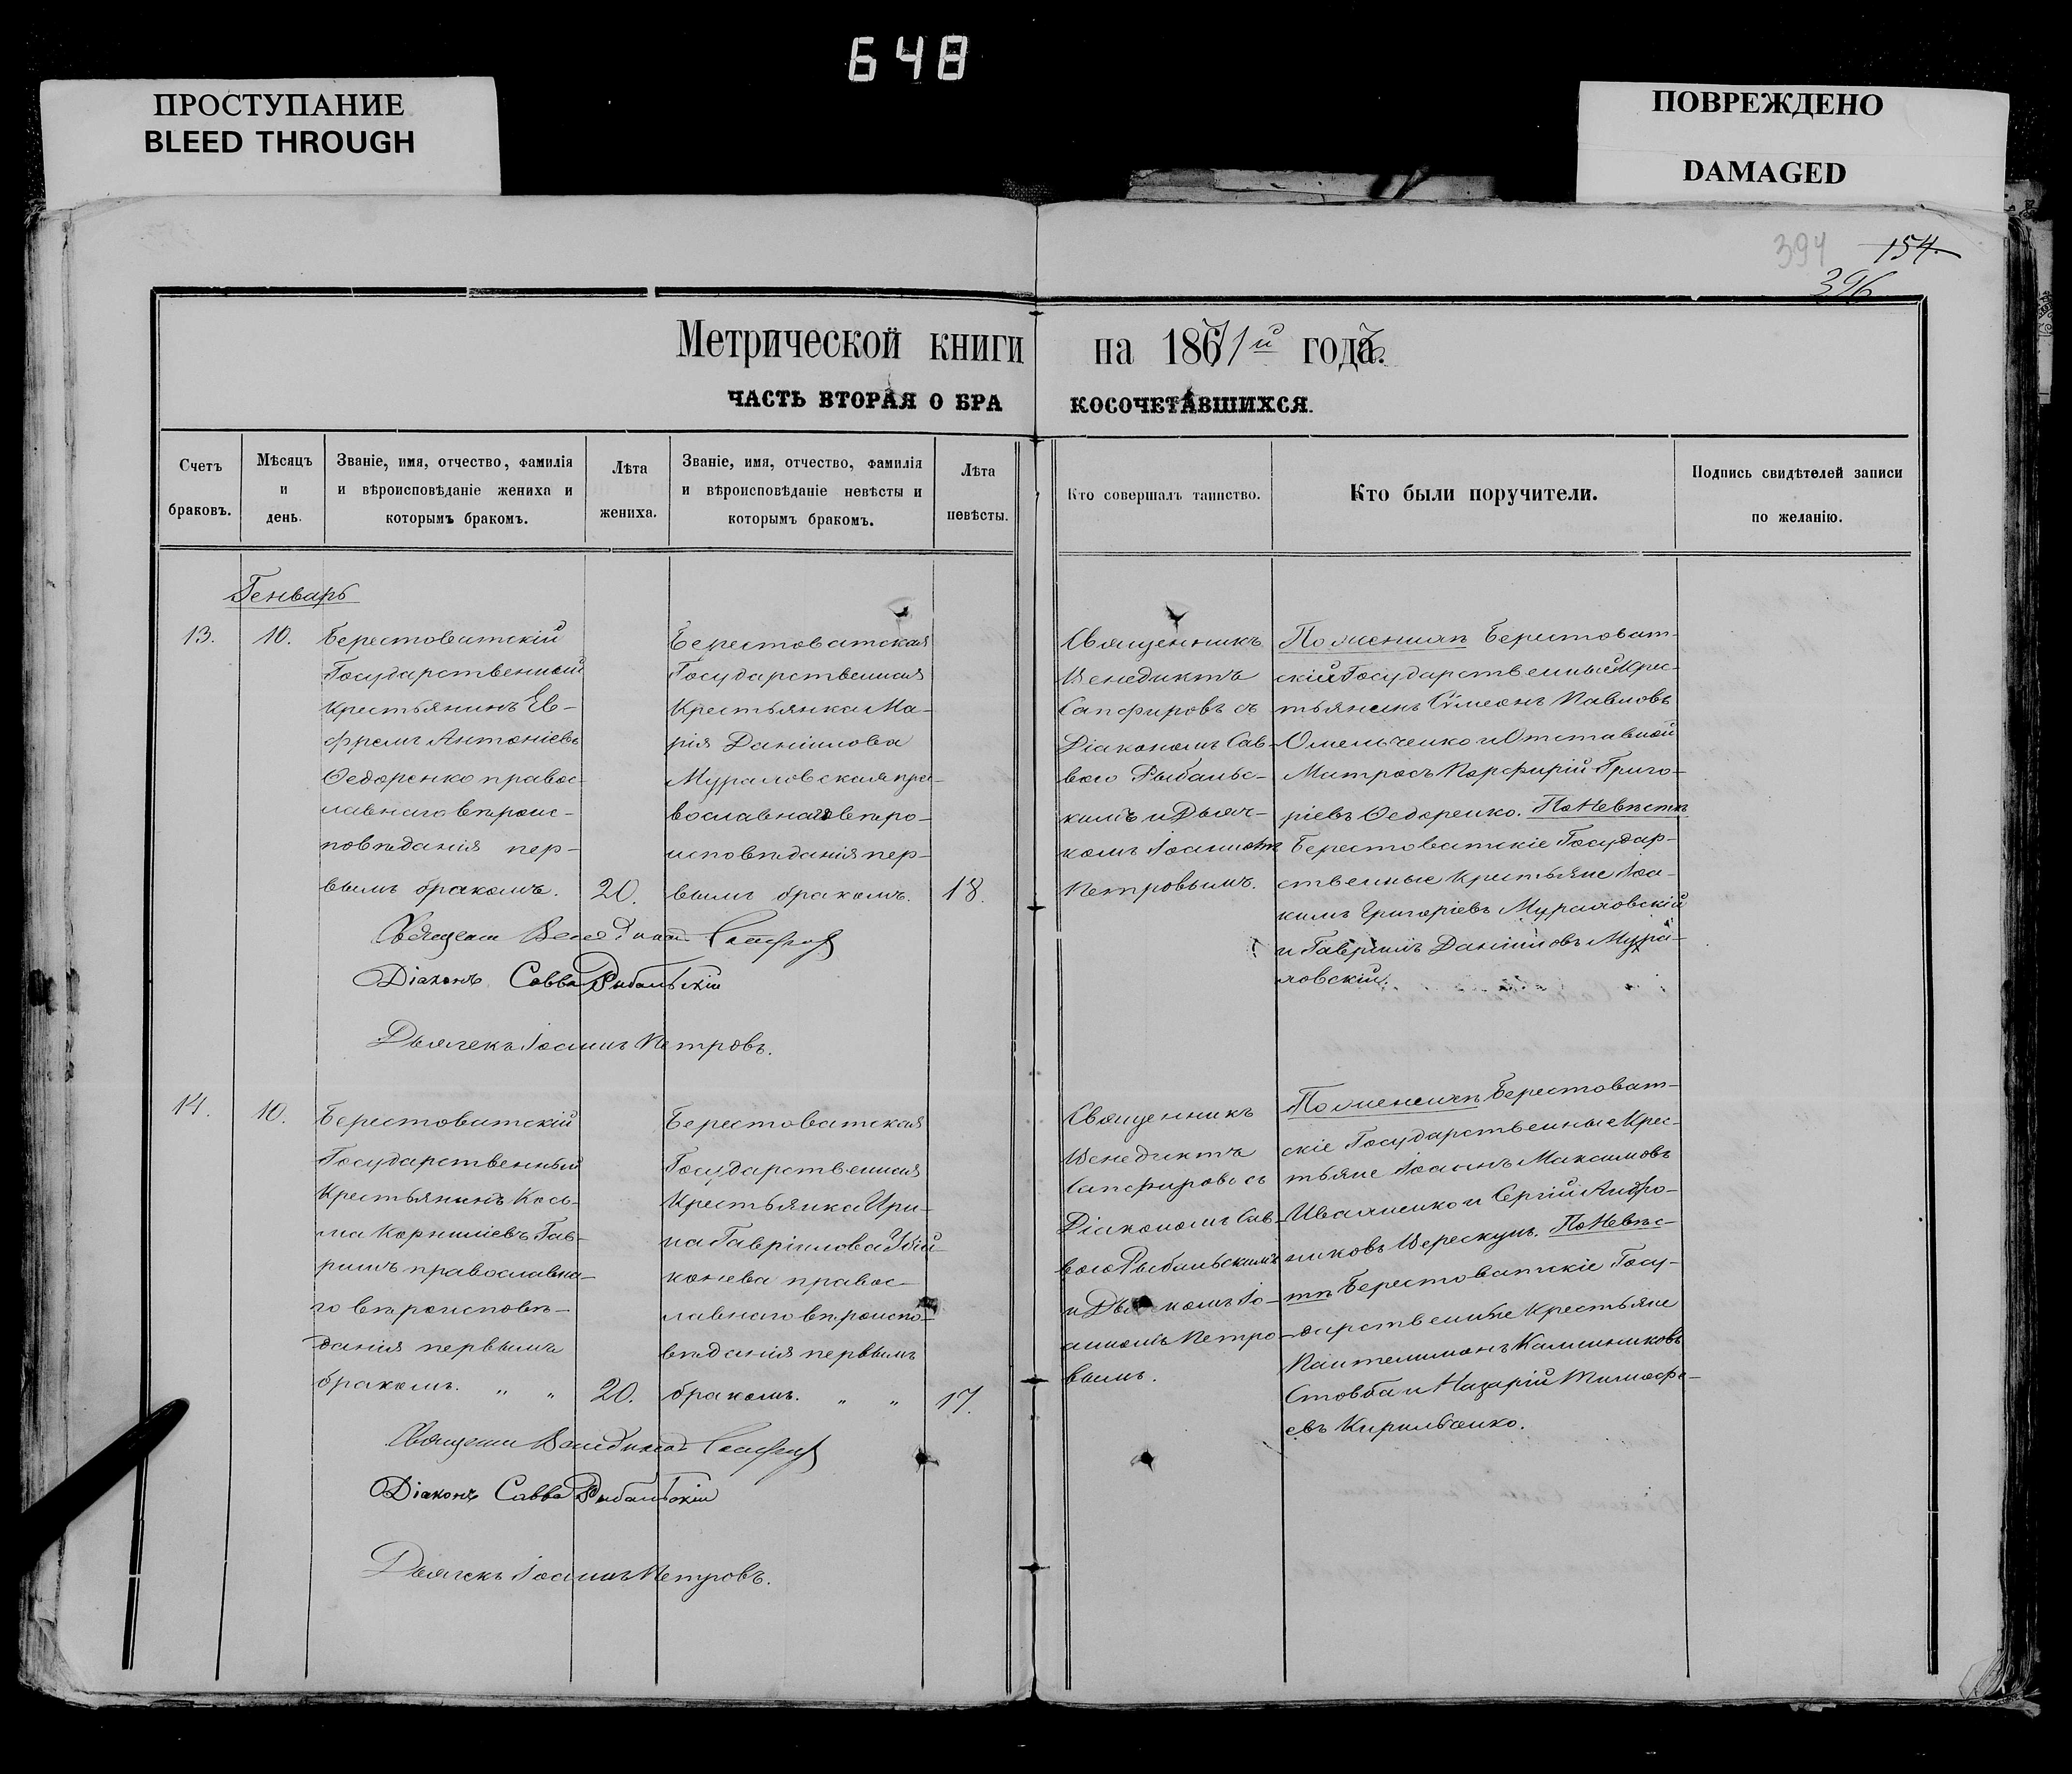 648
ПРОСТУПАНИЕ
BLEED THROUGH
ПОВРЕЖДЕНО
DAMAGED
394 154.
396
Метрической книги на 1871й годъ.
ЧАСТЬ ВТОРАЯ О БРАКОСОЧЕТАВШИХСЯ.
Счетъ
браковъ.
Мѣсяцъ
и
день.
Званіе, имя, отчество, фамилія
и вѣроисповѣданіе жениха и
которымъ бракомъ.
Лѣта
жениха.
Званіе, имя, отчество, фамилія
и вѣроисповѣданіе невѣсты и
которымъ бракомъ.
Лѣта
невѣсты.
Кто совершалъ таинство.
Кто были поручители.
Подпись свидѣтелей записи
по желанію.
Генварь
13.
10.
Берестоватскій
Государственный
Крестьянинъ Ев-
фремъ Антоніевъ
Ѳедоренко правос-
лавнаго вѣроис-
повѣданія пер-
вымъ бракомъ.
20.
Берестоватская
Государственная
Крестьянка Ма-
рія Даніилова
Мураловская пра-
вославнаго вѣро-
исповѣданія пер-
вымъ бракомъ.
18.
Священникъ
Венедиктъ
Сапфировъ съ
Діакономъ Сав-
вою Рыбальс-
кимъ и Дьяч-
комъ Іоанномъ
Петровымъ.
По женихѣ Берестоват-
скій Государственный Крес-
тьянинъ Сѵмеонъ Павловъ
Омельченко и Отставной
Матросъ Порфирій Григо-
ріевъ Ѳедоренко. По Невѣстѣ
Берестоватскіе Государ-
ственные Крестьяне Іоа-
кимъ Григоріевъ Мураловскій
и Гавріилъ Даніиловъ Мура-
ловскій.
Священни Венедиктъ Сапфировъ
Діаконъ Савва Рыбальскій
Дьячекъ Іоаннъ Петровъ.
14.
10.
Берестоватскій
Государственный
Крестьянинъ Кось-
ма Корниліевъ Гав-
ришъ православна-
го вѣроисповѣ-
данія первымъ
бракомъ. „ „
20.
Берестоватская
Государственная
Крестьянка Ири-
на Гавріилова Убій-
конева правос-
лавнаго вѣроиспо-
вѣданія первымъ
бракомъ. „ „
17.
Священникъ
Венедиктъ
Сапфировъ съ
Діакономъ Сав-
вою Рыбальскимъ
и Дьячкомъ Іо-
анномъ Петро-
вымъ.
По женихѣ Берестоват-
скіе Государственные Крес-
тьяне Іоаннъ Максимовъ
Иващенко и Сергій Андро-
никовъ Верескунъ. По Невѣс-
тѣ Берестоватскіе Госу-
дарственные Крестьяне
Пантелимонъ Калинниковъ
Стовба и Назарій Тимоѳе-
евъ Кирильченко.
Священни Венедиктъ Сапфировъ
Діаконъ Савва Рыбальскій
Дьячекъ Іоаннъ Петровъ.